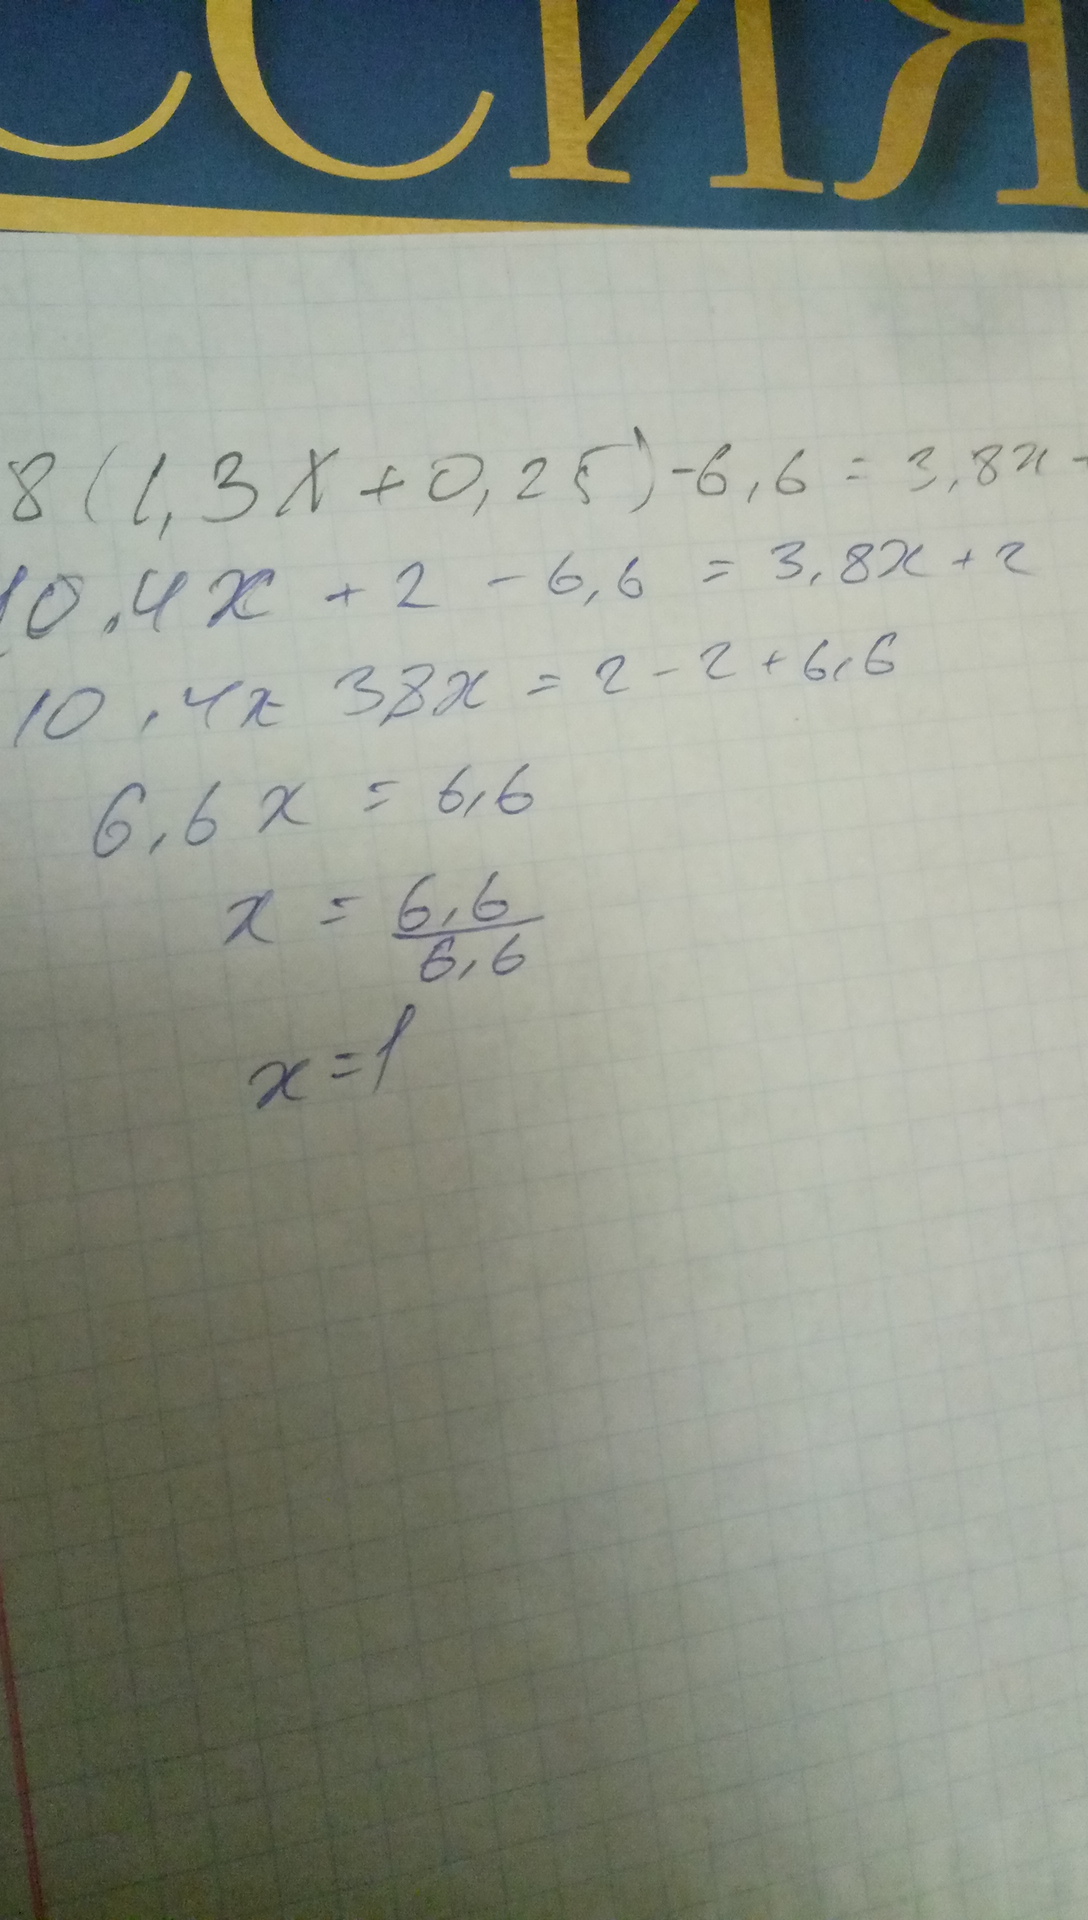 ССИЯ
8(1,3x+0,25)-6,6=3,8x+
10,4x+2-6,6=3,8x+2
10,4x 3,8x=2-2+6,6
6,6x=6,6
x=6,6/6,6
x=1